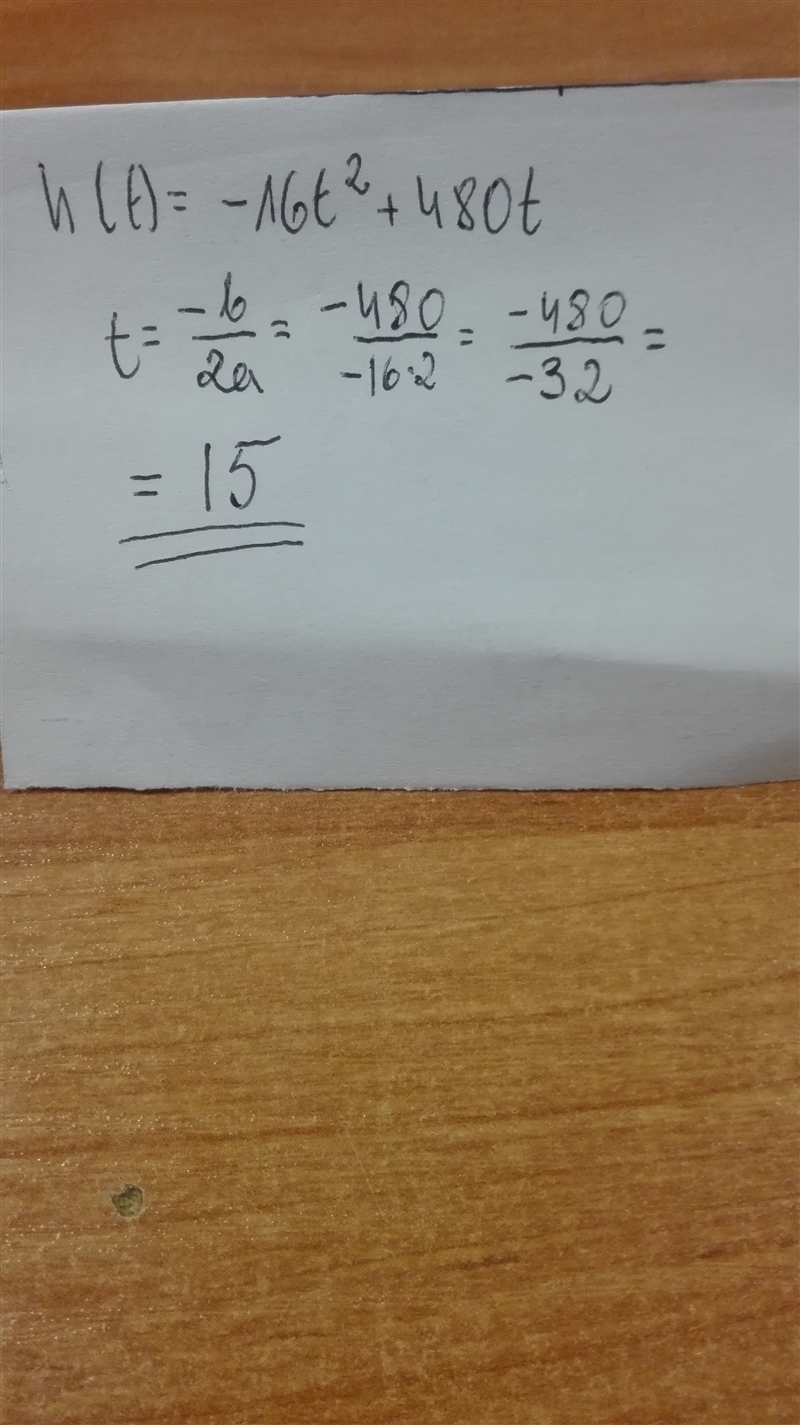 h(t) = -16t² + 480t
t = -b/2a = -480/-16·2 = -480/-32 =
= 15